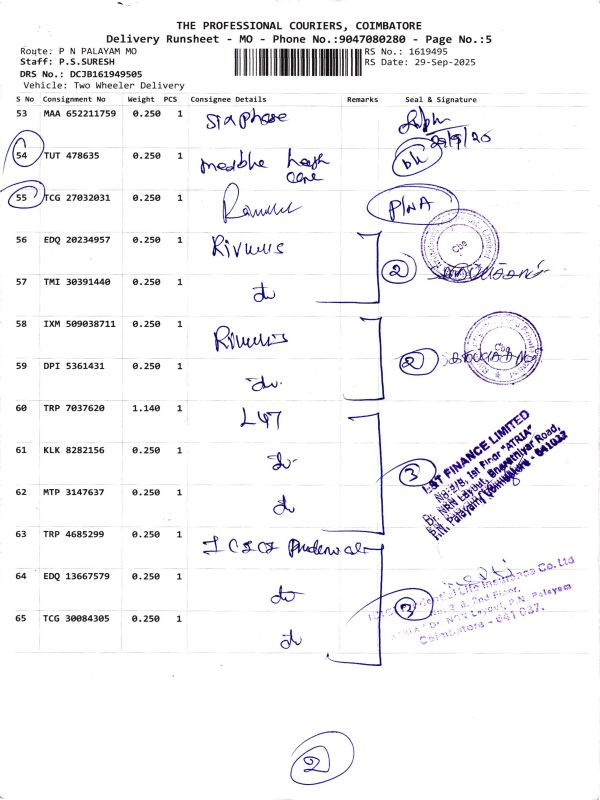 THE PROFESSIONAL COURIERS, COIMBATORE
Delivery Runsheet - MO - Phone No.:9047080280 - Page No.:5
Route: P N PALAYAM MO RS No.: 1619495
Staff: P.S.SURESH RS Date: 29-Sep-2025
DRS No.: DCJB161949505
Vehicle: Two Wheeler Delivery
S No Consignment No Weight PCS Consignee Details Remarks Seal & Signature
53 MAA 652211759 0.250 1
54 TUT 478635 0.250 1
55 TCG 27032031 0.250 1 P/NA
56 EDQ 20234957 0.250 1 Rivulis 2
57 TMI 30391440 0.250 1 do
58 IXM 509038711 0.250 1 Rivulis 2
59 DPI 5361431 0.250 1 do
60 TRP 7037620 1.140 1 L&T
61 KLK 8282156 0.250 1 do 3
62 MTP 3147637 0.250 1 do
L&T FINANCE LIMITED
No:3/8, 1st Floor "ATRIA"
Dr. NRN Layout, Bharathiyar Road,
P.N. Palayam, Coimbatore - 641037
63 TRP 4685299 0.250 1 ICICI Prudential
64 EDQ 13667579 0.250 1 do 3
65 TCG 30084305 0.250 1 do
Life Insurance Co. Ltd
2nd Floor,
Dr. NRN Layout, P.N. Palayam
Coimbatore - 641 037.
2